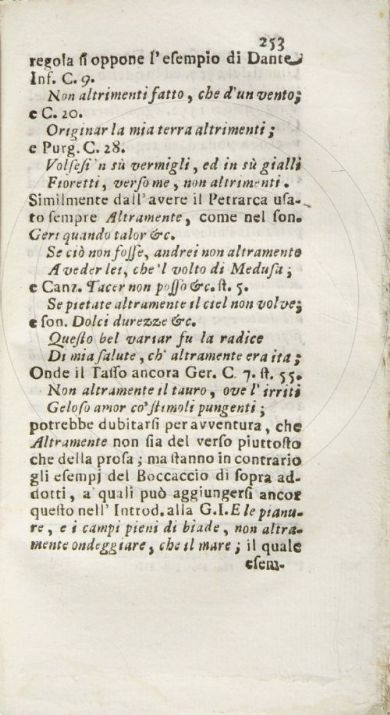 253
regola ſi oppone l'eſempio di Dante
Inf. C. 9.
Non altrimenti fatto, che d'un vento;
e C. 20.
Originar la mia terra altrimenti;
e Purg. C. 28.
Volſeſi 'n sù vermigli, ed in sù gialli
Fioretti, verſo me, non altrimenti.
Similmente dall'avere il Petrarca uſa-
to ſempre Altramente, come nel ſon.
Geri quando talor &c.
Se ciò non foſſe, andrei non altramente
A veder lei, che 'l volto di Meduſa;
e Canz. Tacer non poſſo &c. ſt. 5.
Se pietate altramente il ciel non volve;
e ſon. Dolci durezze &c.
Queſto bel variar fu la radice
Di mia ſalute, ch' altramente era ita;
Onde il Taſſo ancora Ger. C. 7. ſt. 55.
Non altramente il tauro, ove l'irriti
Geloſo amor co' ſtimoli pungenti;
potrebbe dubitarſi per avventura, che
Altramente non ſia del verſo piuttoſto
che della proſa; ma ſtanno in contrario
gli eſempj del Boccaccio di ſopra ad-
dotti, a' quali può aggiungerſi ancor
queſto nell' Introd. alla G.I. E le pianu-
re, e i campi pieni di biade, non altra-
mente ondeggiare, che il mare; il quale
eſem-